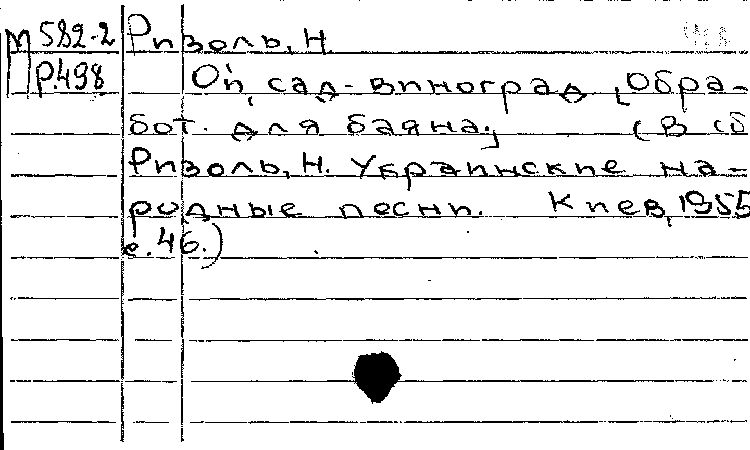 М 582-2 Ризоль, Н.
Р.498 Ой, сад-виноград [Обра-
бот. для баяна] (В сб
Ризоль, Н. Украинские на-
родные песни. Киев, 1955
с.46.)